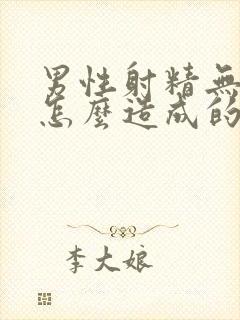 男性射精無
怎麼造成的
李大娘